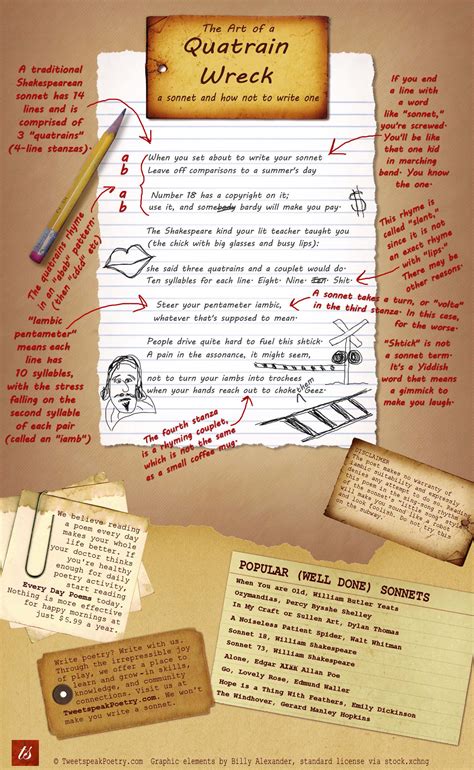 The Art of a
Quatrain
Wreck
a sonnet and how not to write one
A traditional
Shakespearean
sonnet has 14
lines and is
comprised of
3 "quatrains"
(4-line stanzas).
If you end
a line with
a word
like "sonnet,"
you're screwed.
You'll be like
that one kid
in marching
band. You know
the one.
a
b
When you set about to write your sonnet
Leave off comparisons to a summer's day
a
b
Number 18 has a copyright on it;
use it, and somebody bardy will make you pay.
$
The quatrains rhyme
in an "abab" pattern.
(then "cdcd" etc)
This rhyme is
called "slant,"
since it is
not an exact
rhyme with
"lips."
There may be
other reasons.
The Shakespeare kind your lit teacher taught you
(the chick with big glasses and busy lips):
she said three quatrains and a couplet would do.
Ten syllables for each line. Eight. Nine. Ten. Shit.
A sonnet takes a turn, or "volta"
in the third stanza. In this case,
for the worse.
Steer your pentameter iambic,
whatever that's supposed to mean.
"Iambic
pentameter"
means each
line has
10 syllables,
with the stress
falling on the
second syllable
of each pair
(called an "iamb")
People drive quite hard to fuel this shtick.
A pain in the assonance, it might seem,
"Shtick" is not
a sonnet term.
It's a Yiddish
word that means
a gimmick to
make you laugh.
not to turn your iambs into trochees
when your hands reach out to choke them Geez.
The fourth stanza
is a rhyming couplet,
which is not the same
as a small coffee mug.
DISCLAIMER
The poet makes no warranty of
iambic suitability and expressly
denies any attempt to read
this poem in the sing-song rhythm
of the sonnet's "little song" style
may make you sound like a robot
and look foolish. Do not try this
on the subway.
We believe reading
a poem every day
makes your whole
life better. If
your doctor thinks
you're healthy
enough for daily
poetry activity,
start reading
Every Day Poems today.
Nothing is more effective
for happy mornings at
just $5.99 a year.
POPULAR (WELL DONE) SONNETS
When You are Old, William Butler Yeats
Ozymandias, Percy Bysshe Shelley
In My Craft or Sullen Art, Dylan Thomas
A Noiseless Patient Spider, Walt Whitman
Sonnet 18, William Shakespeare
Sonnet 73, William Shakespeare
Alone, Edgar Allan Poe
Go, Lovely Rose, Edmund Waller
Hope is a Thing With Feathers, Emily Dickinson
The Windhover, Gerard Manley Hopkins
Write poetry? Write with us.
Through the irrepressible joy
of play, we offer a place to
learn and grow-in skills,
knowledge, and community
connections. Visit us at
TweetspeakPoetry.com. We won't
make you write a sonnet.
ts
© TweetspeakPoetry.com Graphic elements by Billy Alexander, standard license via stock.xchng